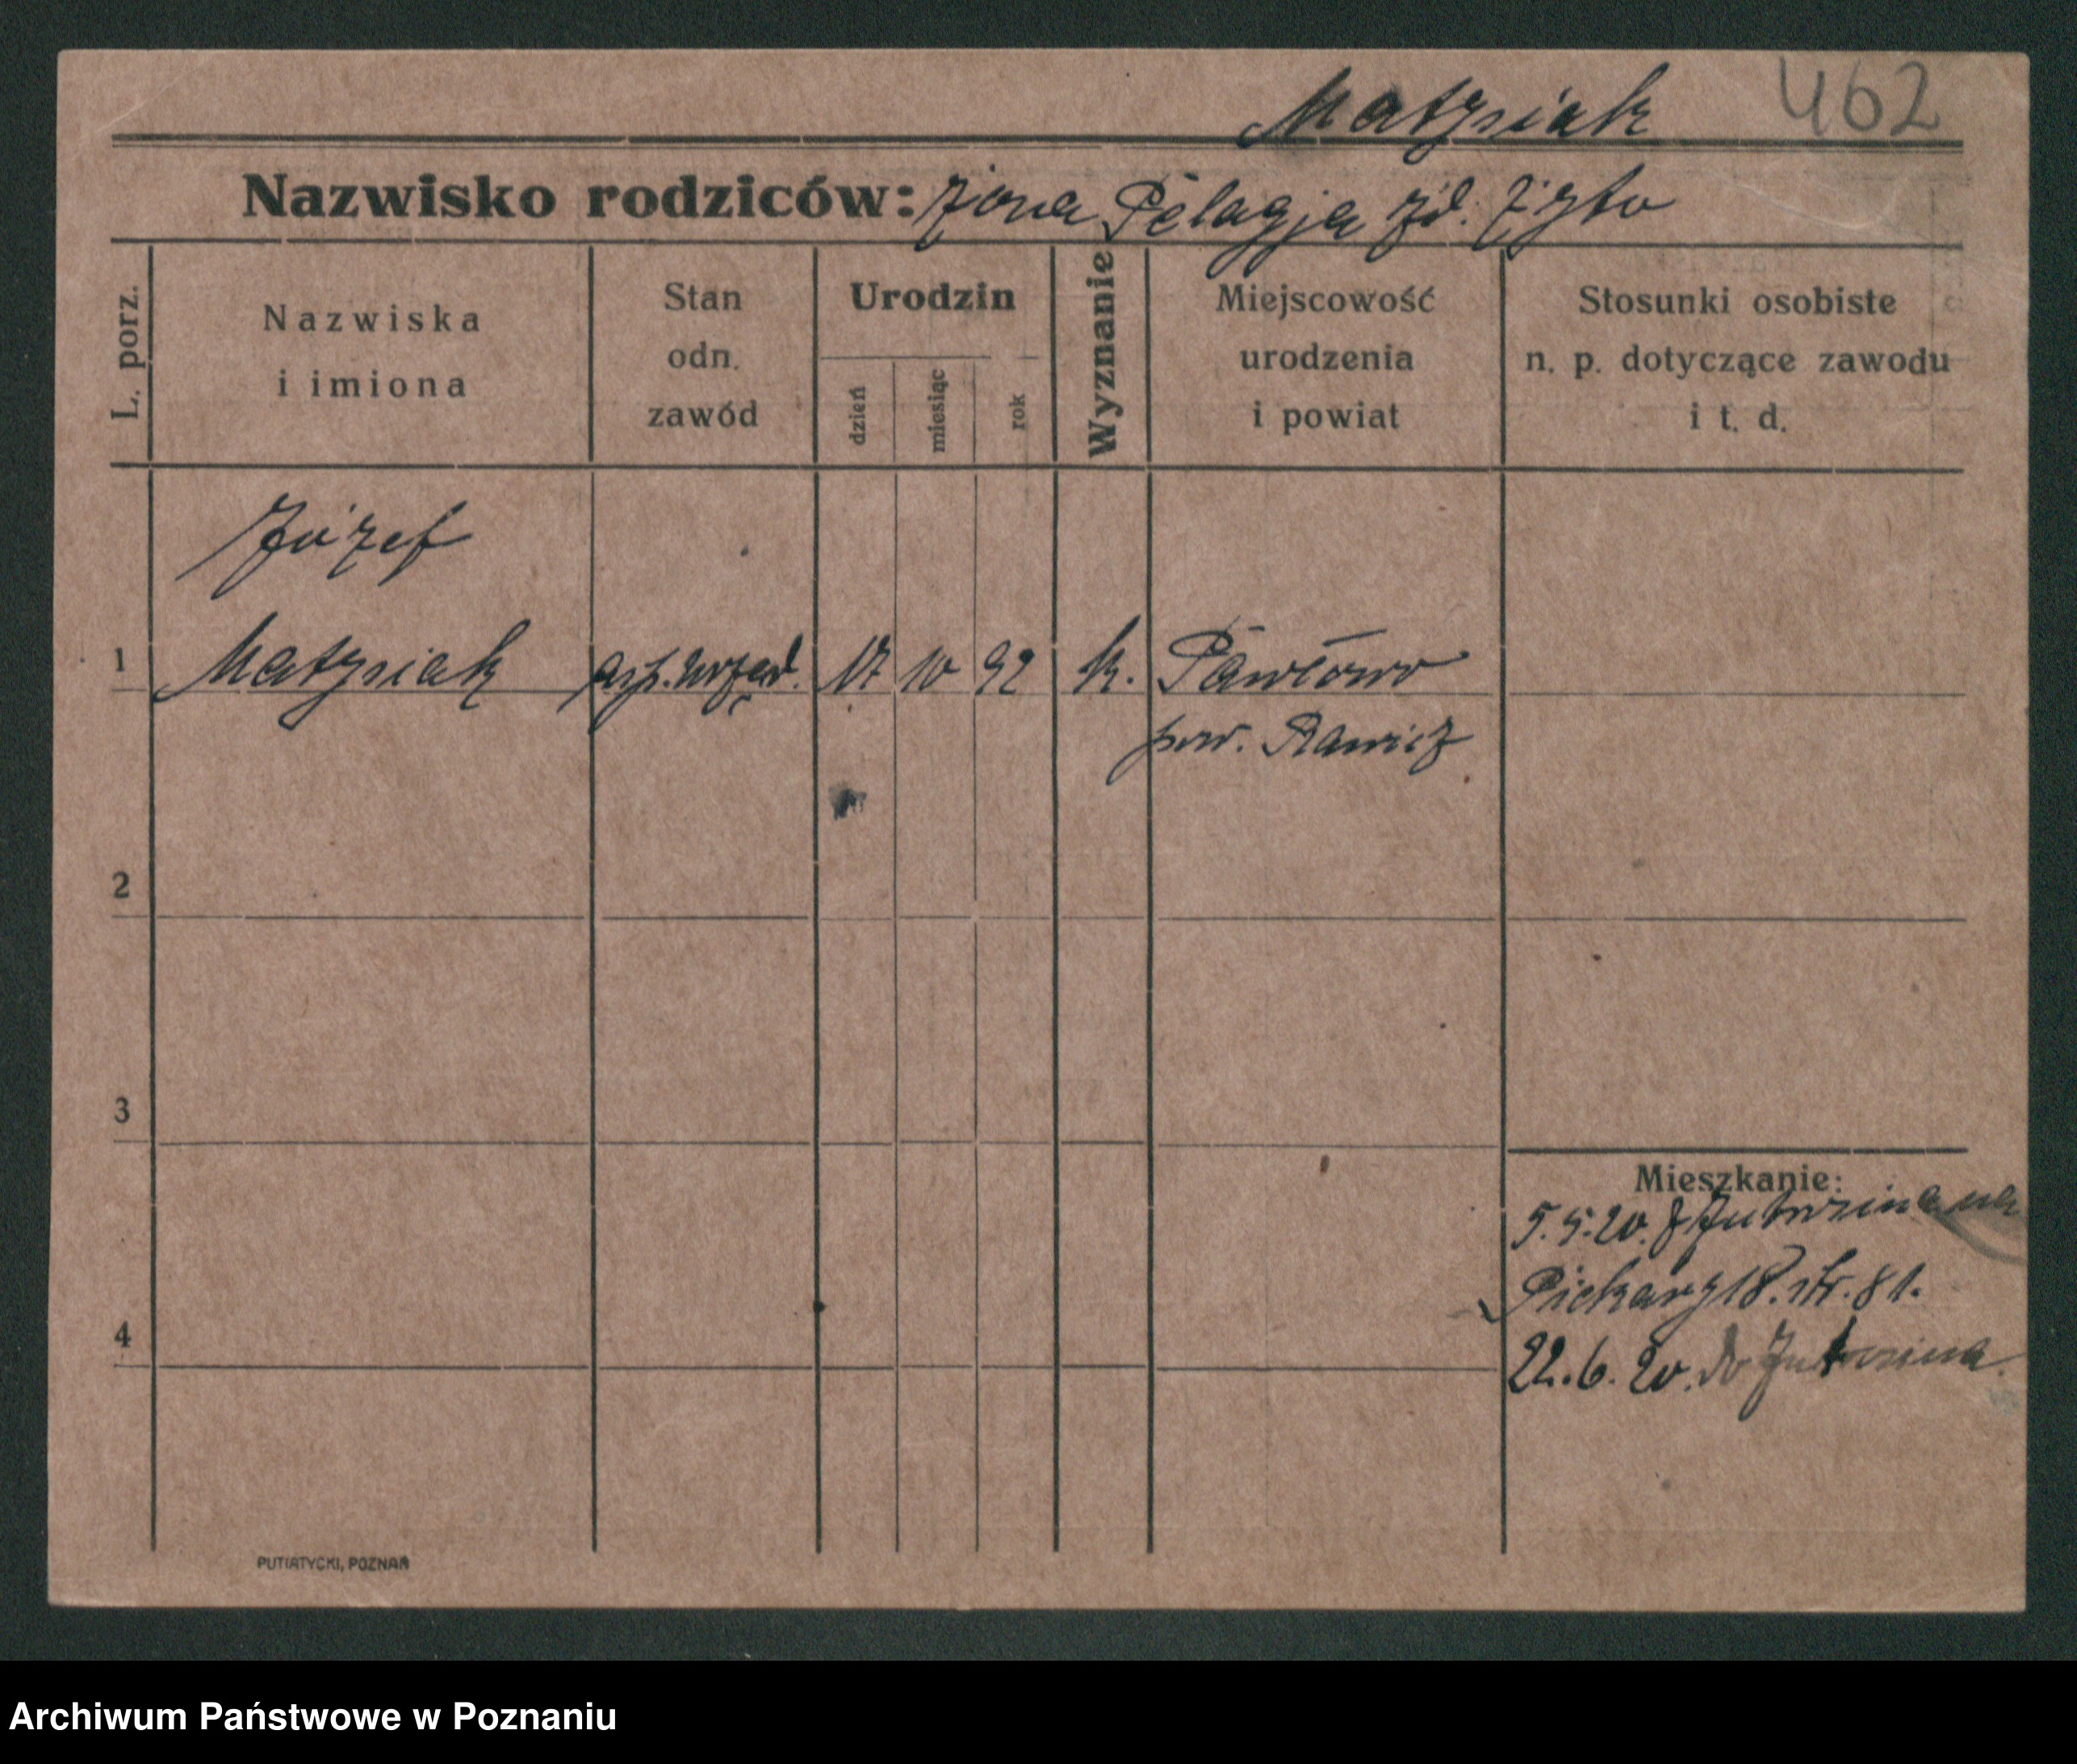 Matysiak 462
Nazwisko rodziców: żona Pelagja zd. Żyto
L. porz.
Nazwiska
i imiona
Stan
odn.
zawód
Urodzin
dzień
miesiąc
rok
Wyznanie
Miejscowość
urodzenia
i powiat
Stosunki osobiste
n. p. dotyczące zawodu
i t. d.
Józef
1 Matysiak asp. urzęd. 17 10 92 k. Pawłowo
pow. Rawicz
2
3
4
Mieszkanie:
5.5.20. z Jutrosina na
Piekary 18. str. 81.
22.6.20. do Jutrosina.
PUTIATYCKI, POZNAŃ
Archiwum Państwowe w Poznaniu